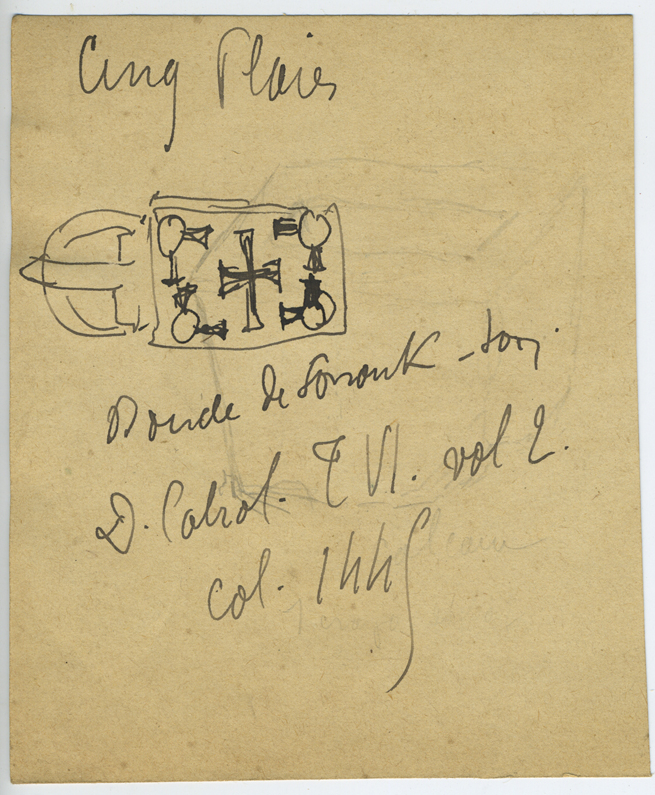 Cinq Plaies
Boucle de
D. Cabrol. T VI. vol 2.
col. 1445